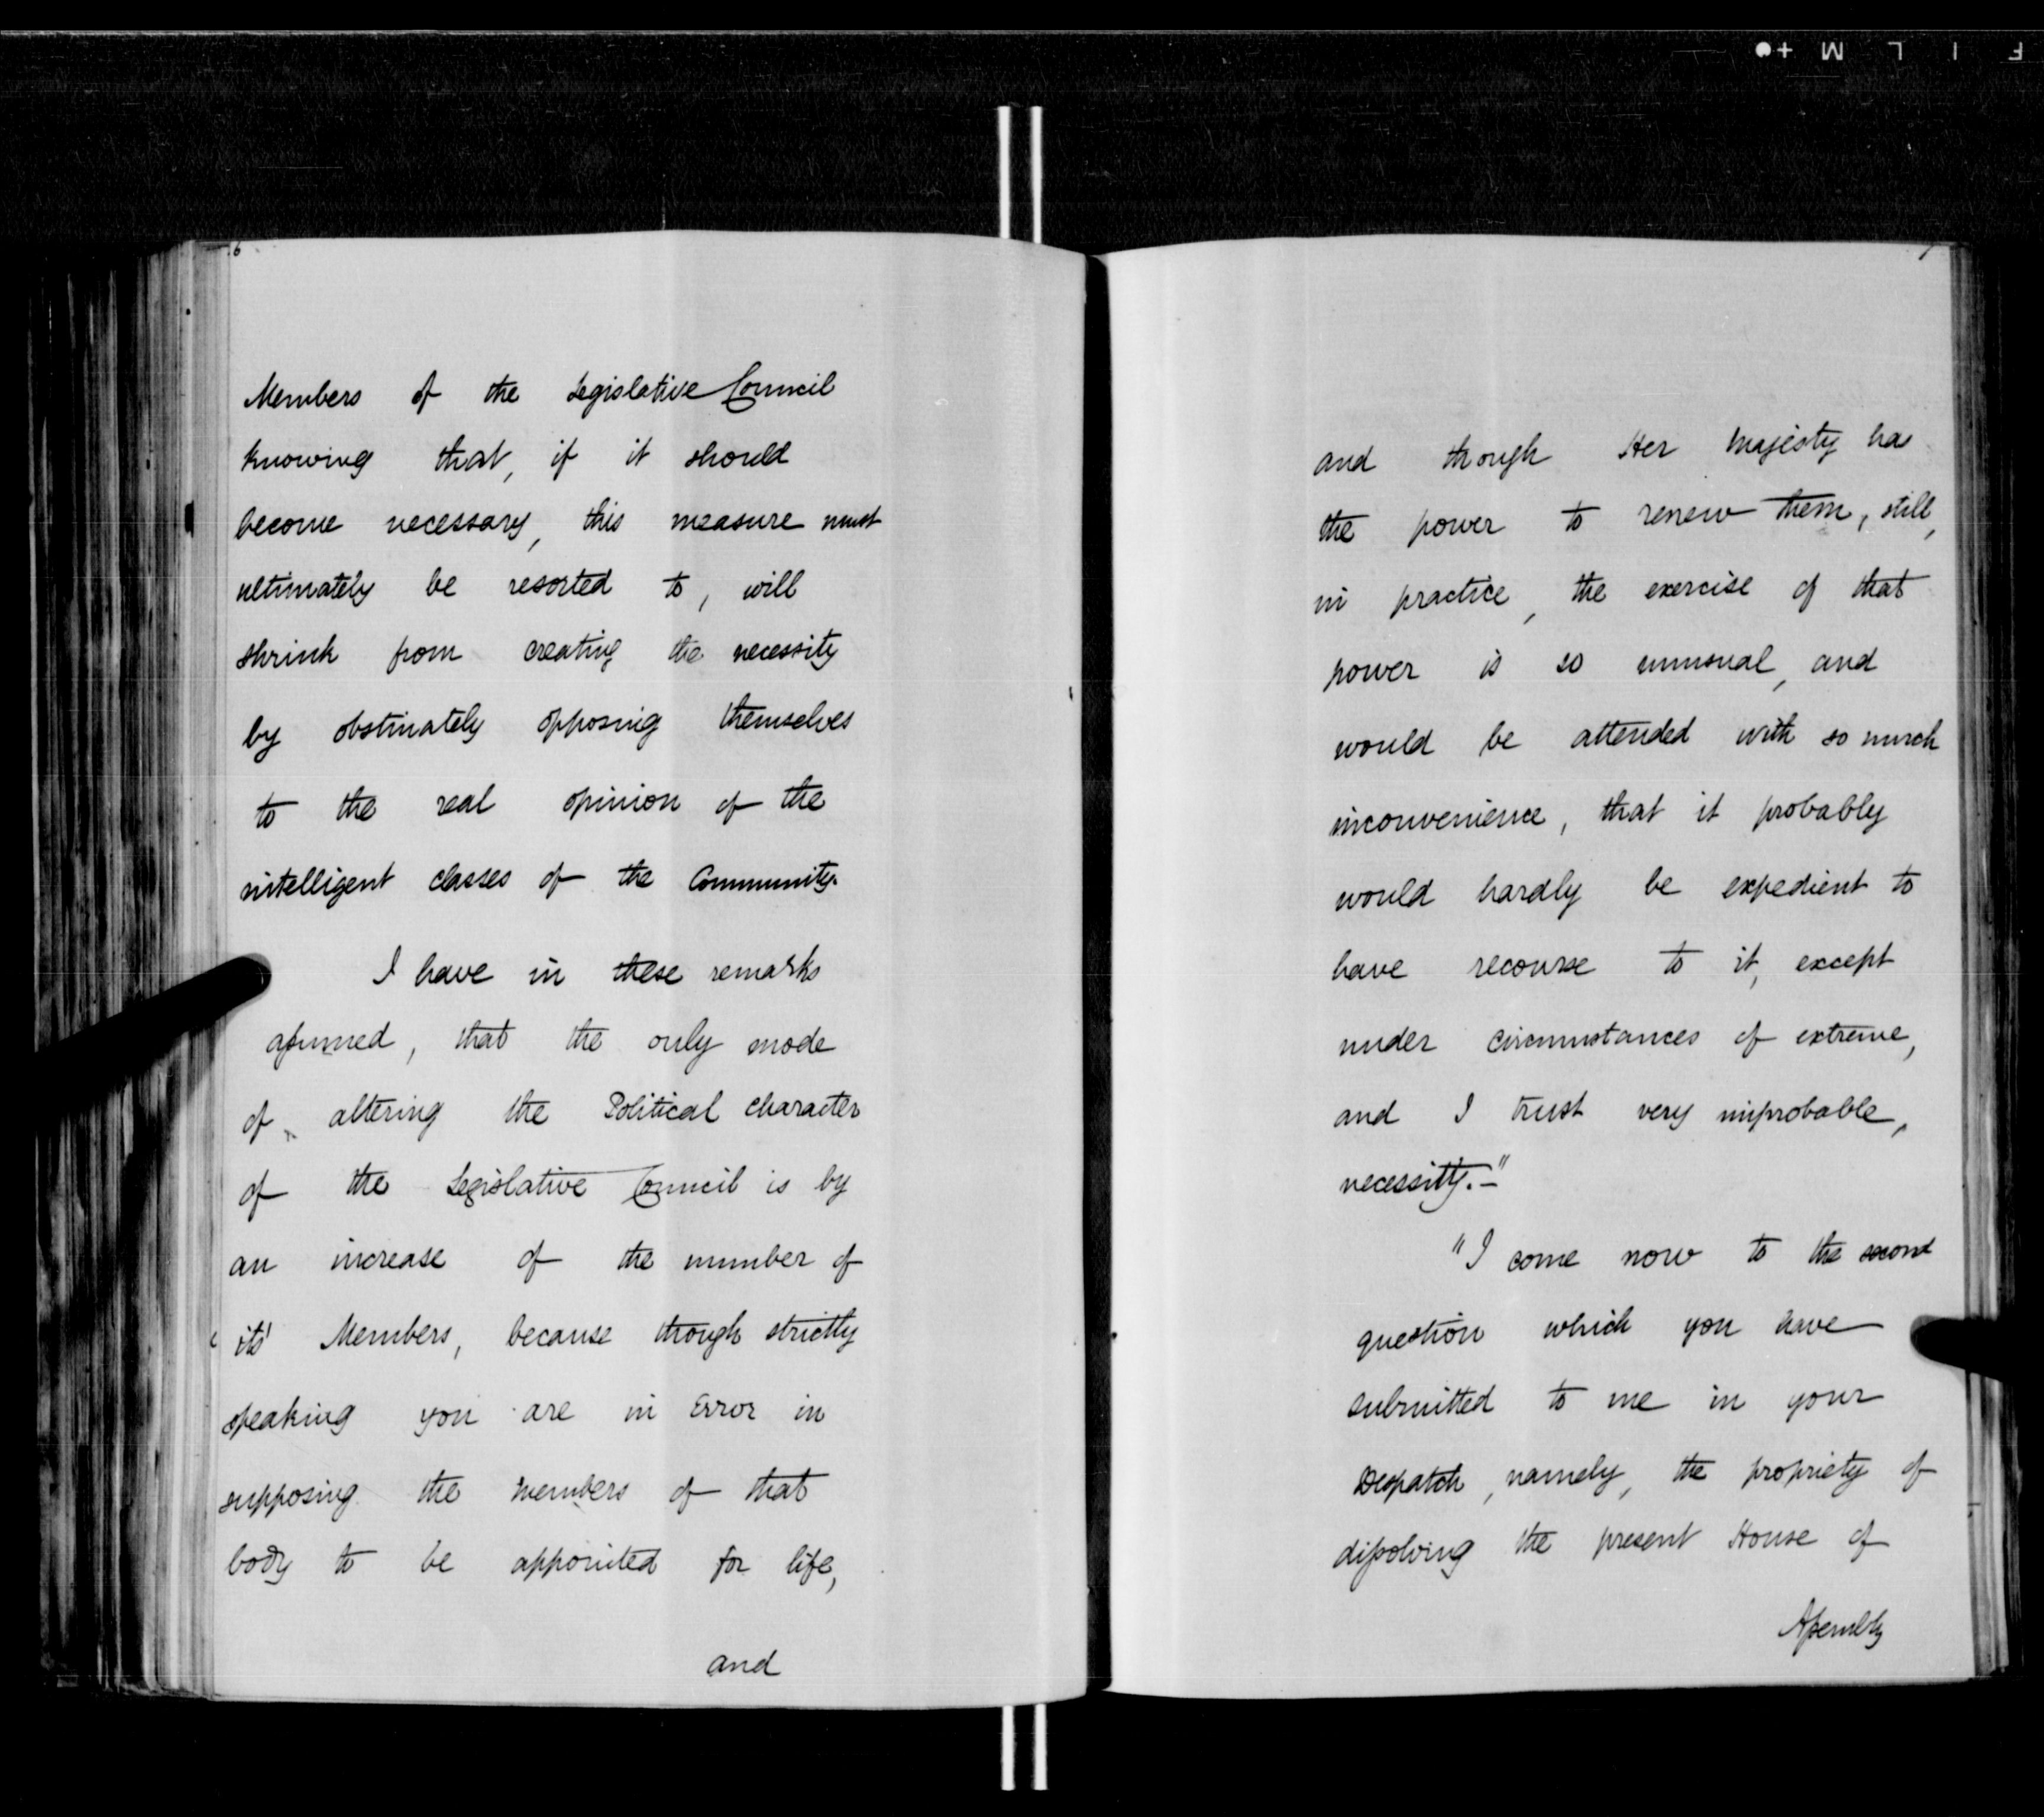 6
Members of the Legislative Council
knowing that, if it should
become necessary, this measure must
ultimately be resorted to, will
shrink from creating the necessity
by obstinately opposing themselves
to the real opinion of the
intelligent classes of the Community.
I have in these remarks
assumed, that the only mode
of altering the Political character
of the Legislative Council is by
an increase of the number of
its' Members, because though strictly
speaking you are in Error in
supposing the members of that
body to be appointed for life,
and
7
and though Her Majesty has
the power to renew them, still,
in practice, the exercise of that
power is so unusual, and
would be attended with so much
inconvenience, that it probably
would hardly be expedient to
have recourse to it, except
under circumstances of extreme,
and I trust very improbable,
necessity.—"
"I come now to the second
question which you have
submitted to me in your
Despatch, namely, the propriety of
dissolving the present House of
Assembly
F I L M